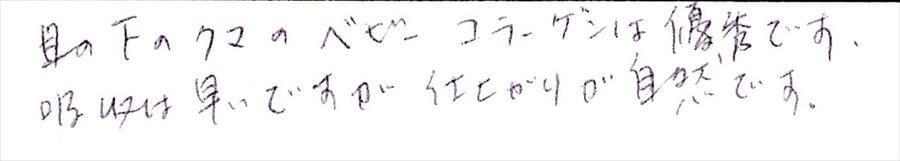 目の下のクマのベビーコラーゲンは優秀です.
吸収は早いですが仕上がりが自然です.